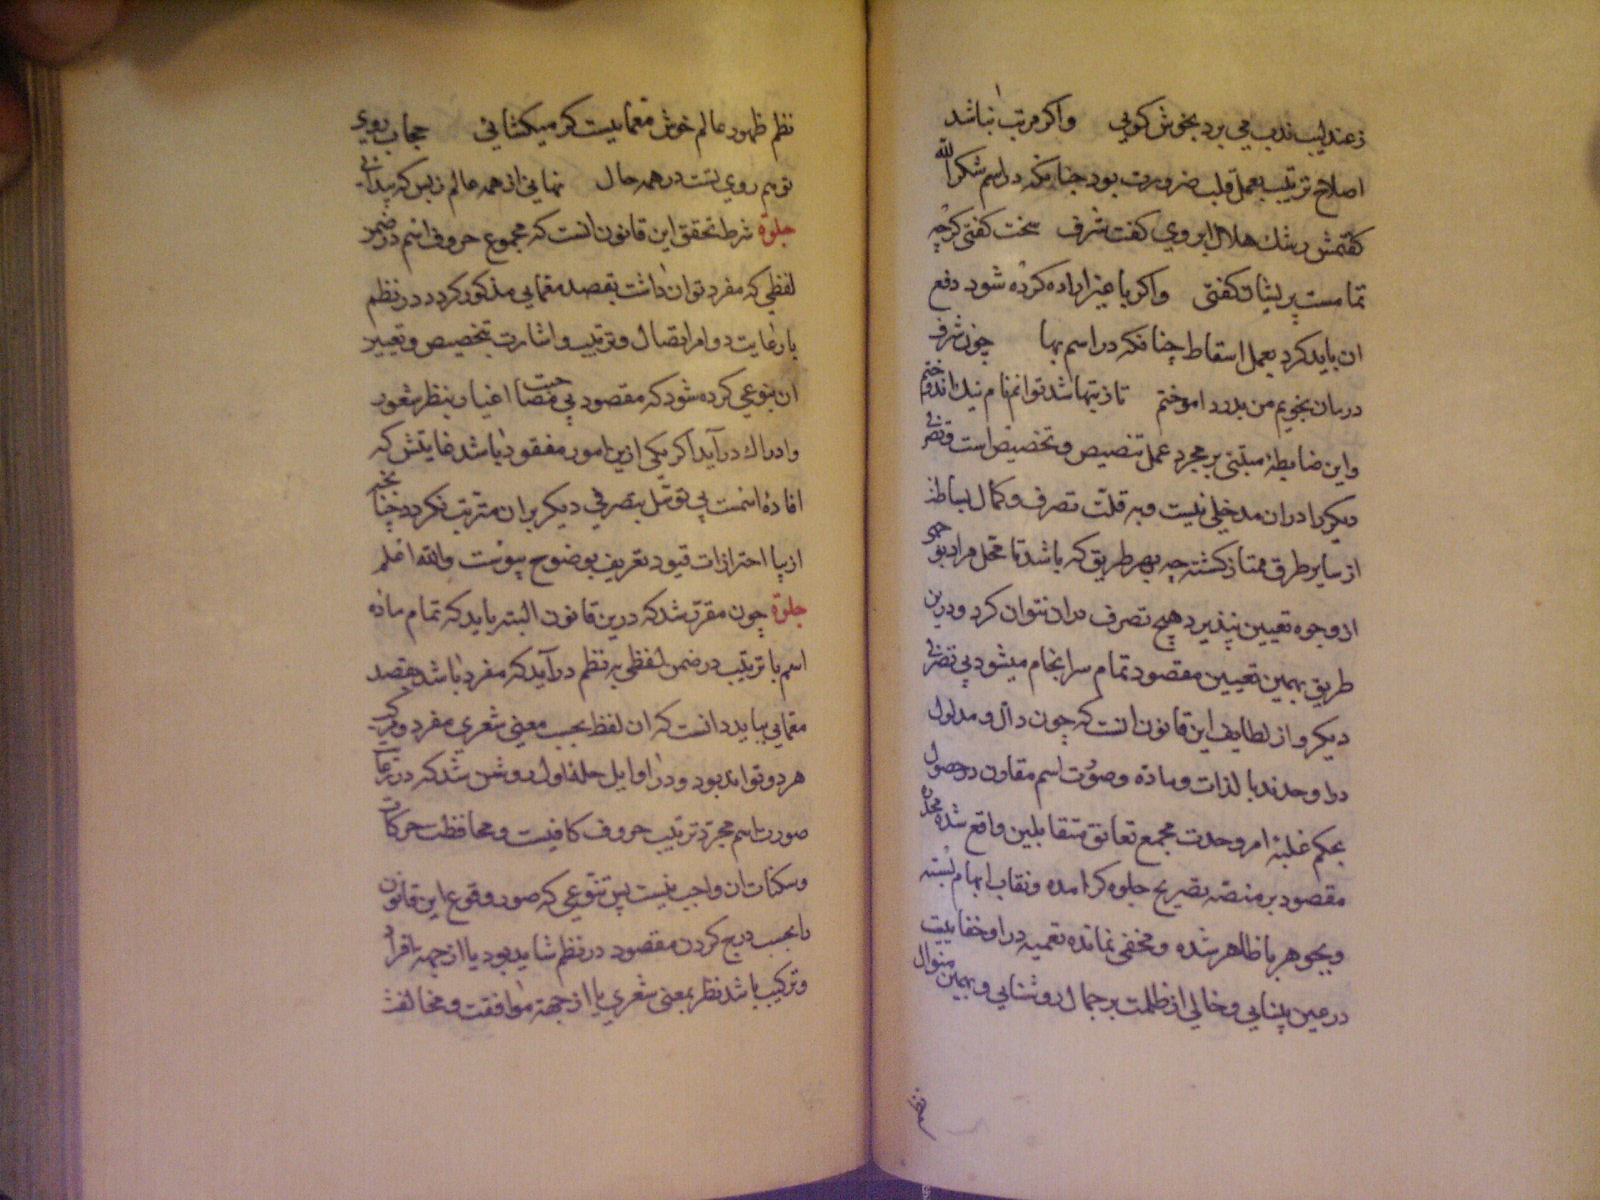 ز عندلیب ندیب می برد بخوش کویی واکر مرتب نباشد
اصلاح ترتیب بعمل قلب ضرورت بود چنانکه در اسم شکرالله
کفتمش رشك هلال ابروی کفت شرف سخت کفتی کرچه
تمامست پریشان کفتی واکر با غیر اراده کرده شود دفع
ان باید کرد بعمل اسقاط چنانکه در اسم بها چون شرف
درمان بخویم من بدرد اموختم تا ز بتها شد توانم نام نیك اندوختم
واین ضابطهٔ مبتنی بر مجرد عمل تنصیص وتخصیص است وتصرفی
دیکر را دران مدخلی نیست وبه قلت تصرف وکمال بساطت
از سایر طرق ممتاز کشته چه بهر طریق که باشد تا محل مراد بوجهی
از وجوه تعیین نپذیرد هیچ تصرف دران نتوان کرد ودرین
طریق بهمین تعیین مقصود تمام سرانجام میشود بی تصرفی
دیکر واز لطایف این قانون انست که چون دال ومدلول
در او حدند بالذات وماده وصورت اسم مقارن در حصول
بحکم غلبهٔ امر وحدت مجمع تعانق متقابلین واقع شده مخدره
مقصود بر منصه تصریح جلوه کر امده ونقاب ابهام نبسته
وبجوهر با ظاهر شده ومخفی نمانده تعمیه در او خفاییت
در عین پیدایی وخالی از ظلمت بر جمال روشنایی وبهمین منوال
نظم ظهور عالم خوش معماییست کر میکشانی حجاب روی
تو هم روی تست در همه حال نهانی از همه عالم ز بس که پیدایی
جلوة شرط تحقق این قانون انست که مجموع حروف اسم در ضمن
لفظی که مفرد توان داشت بقصد معمایی مذکور کردد در نظم
با رعایت دو امر اتصال وترتیب واشارت بتخصیص وتعییر
ان بنوعی کرده شود که مقصود بی مقتضا حیث اغیار بنظر شعور
وادراك درآید اکر یکی ازین امور مفقود باشد غایتش که
افادهٔ اسمت بی توسل بتصرفی دیکر بران مترتب نکردد چنانچه
از پیا احترازات قیود تعریف بوضوح پیوست والله اعلم
جلوة چون مقرر شد که درین قانون البته باید که تمام ماده
اسم با ترتیب در ضمن لفظی به نظم درآید که مفرد باشد بقصد
معمایی بباید دانست که ان لفظ بحسب معنی شعری مفرد ومرکب
هر دو تواند بود ودر اوایل حله اول روشن شد که در رعایت
صورت اسم مجرد ترتیب حروف کافیست ومحافظت حرکات
وسکنات ان واجب نیست پس تنوعی که صور وقوع این قانون
را بحسب درج کردن مقصود در نظم شاید بود یا از جهة افراد
وترکیب باشد نظر بمعنی شعری یا از جهة موافقت ومخالفت